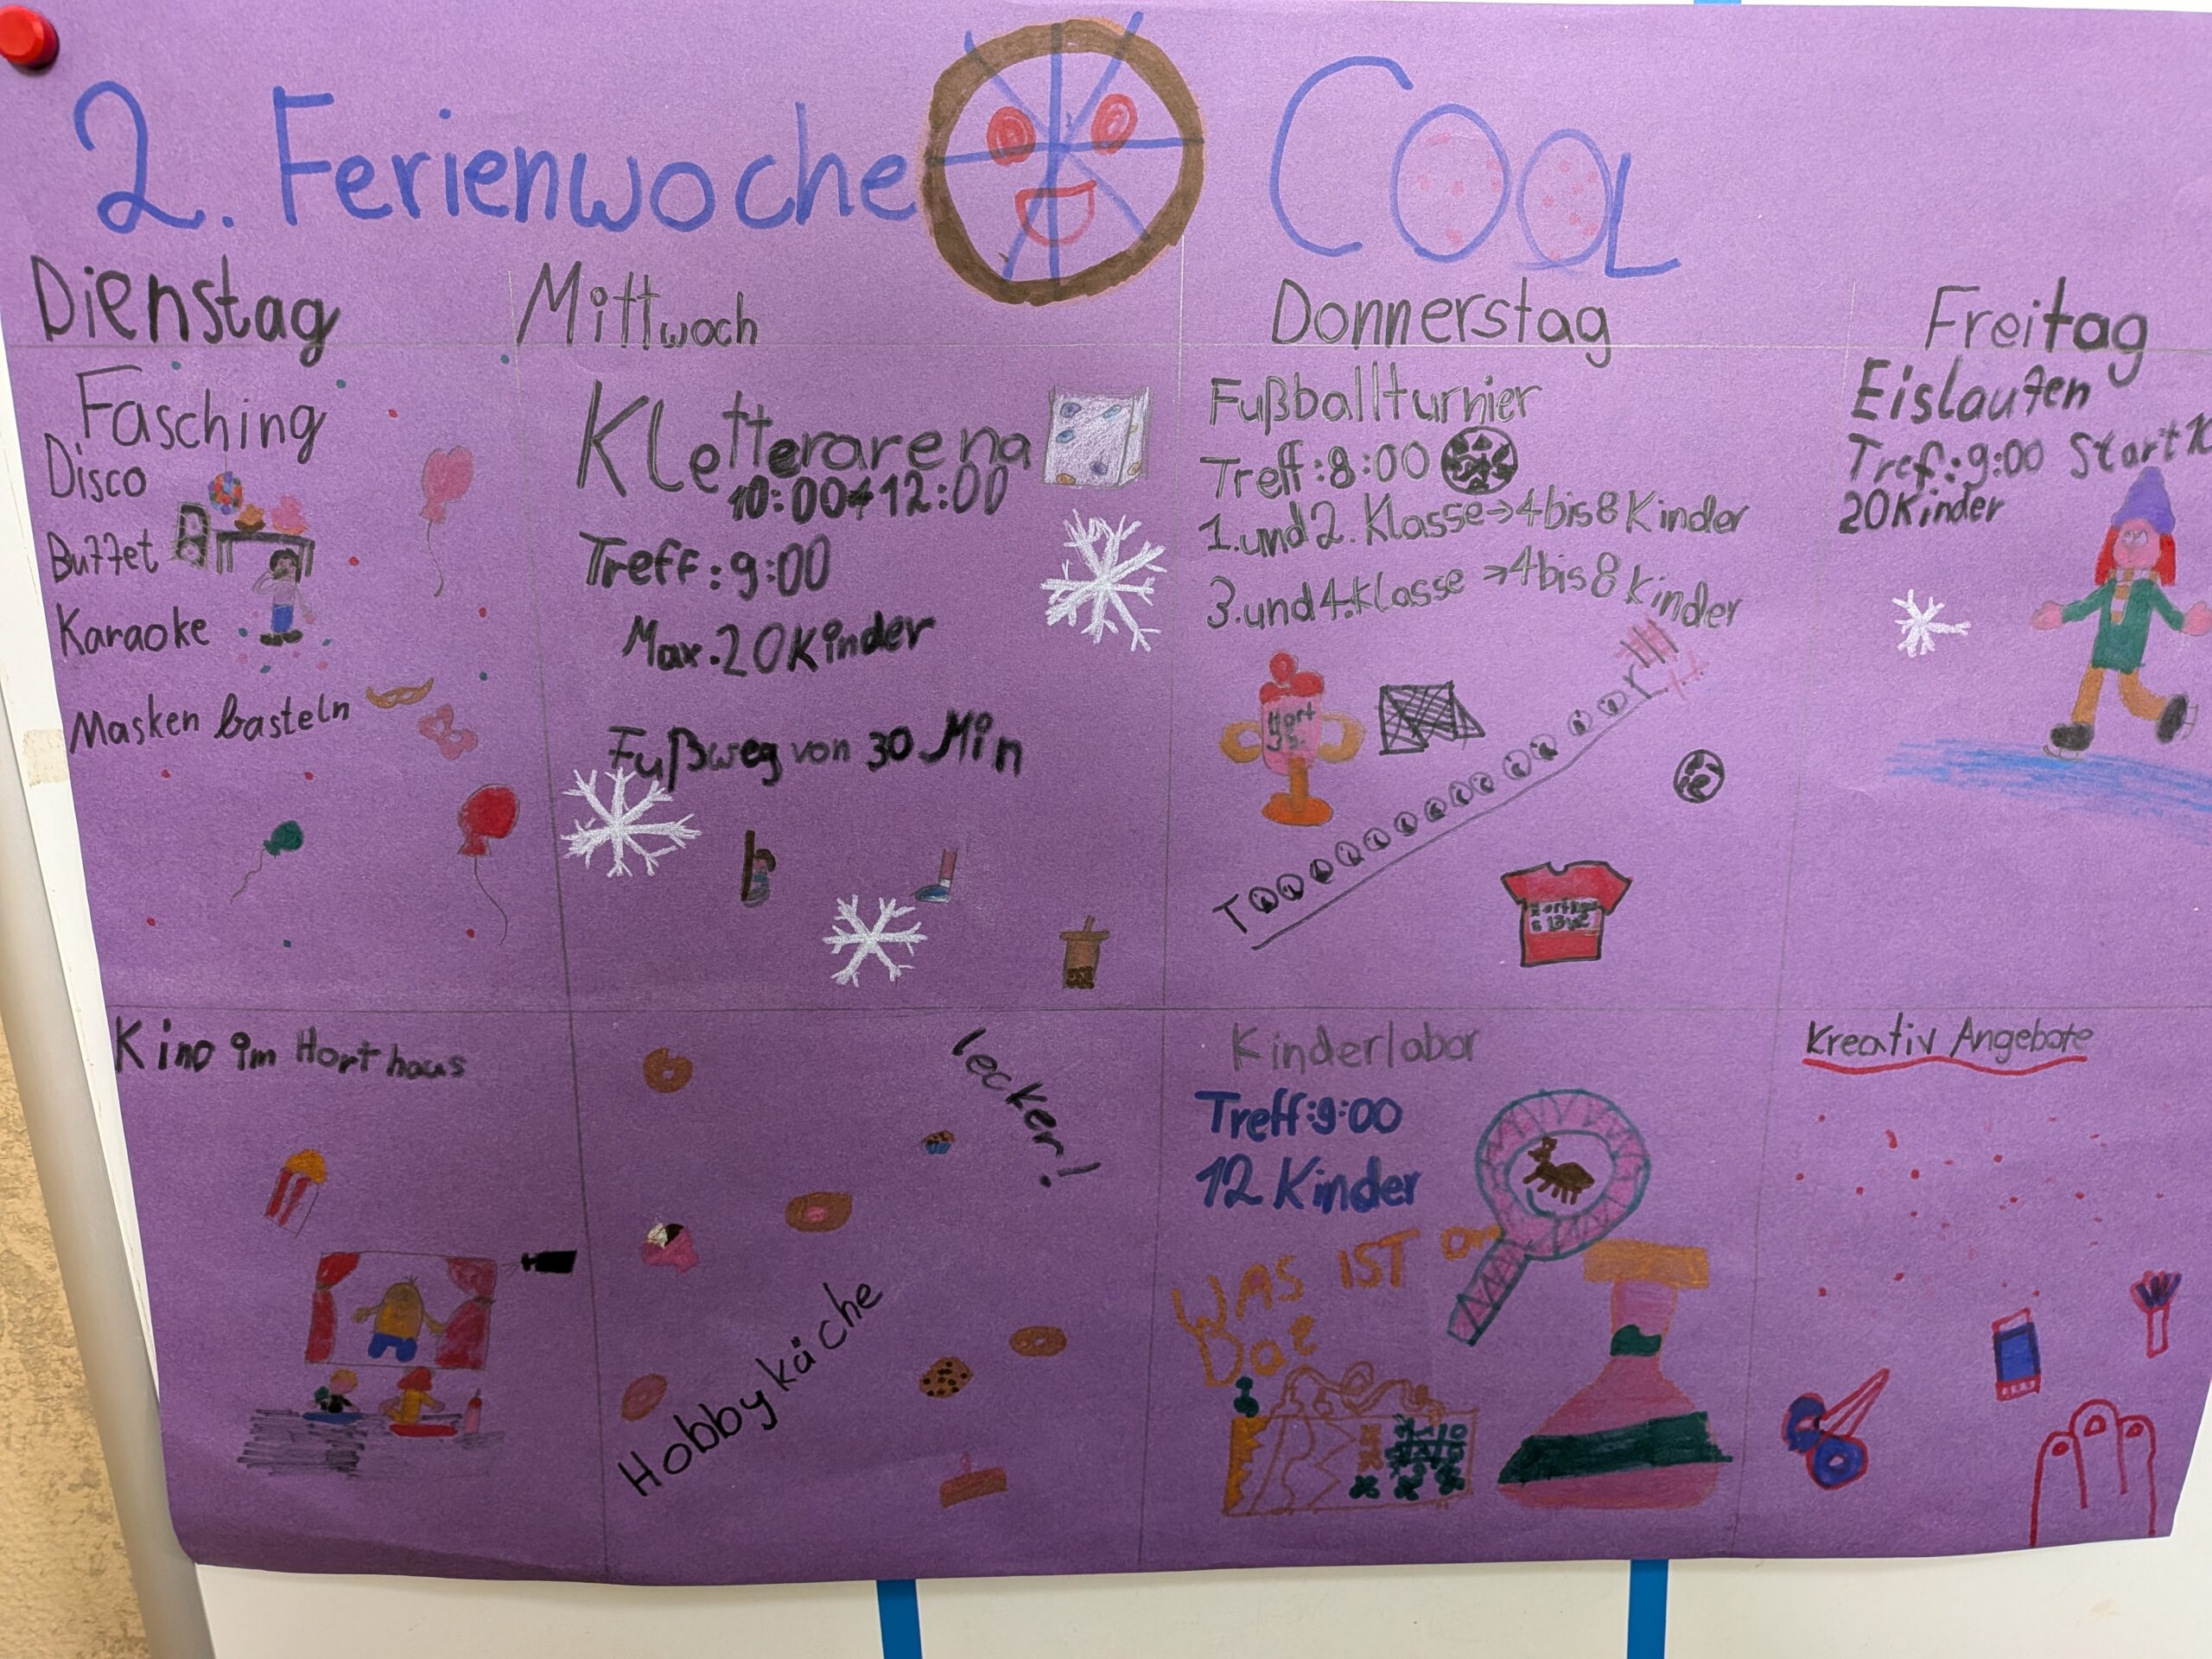 2. Ferienwoche COOL
Dienstag
Mittwoch
Donnerstag
Freitag
Fasching
Disco
Buffet
Karaoke
Masken basteln
Kletterarena
10:00-12:00
Treff: 9:00
Max. 20 Kinder
Fußweg von 30 Min
Fußballturnier
Treff: 8:00
1. und 2. Klasse → 4 bis 8 Kinder
3. und 4. Klasse → 4 bis 8 Kinder
Hort
Tooooooooooooor!!!
Eislaufen
Tref: 9:00 Start 10
20 Kinder
Kino im Horthaus
lecker!
Hobbyküche
Kinderlabor
Treff: 9:00
12 Kinder
WAS IST
Kreativ Angebote